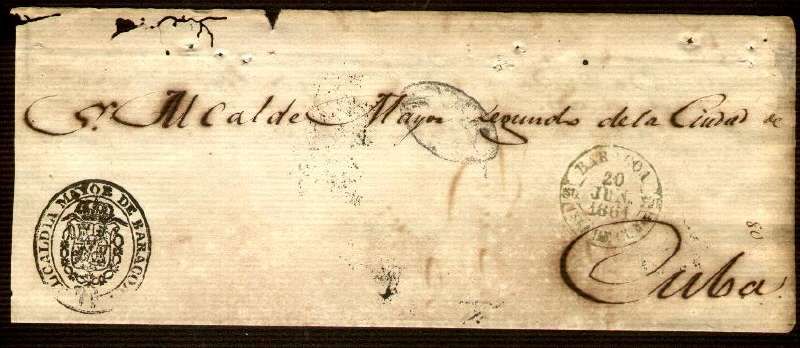 Sr. Alcalde Mayor Segundo de la Ciudad de
Cuba
ALCALDIA MAYOR DE BARACOA
BARACOA
20
JUN.
1861
80